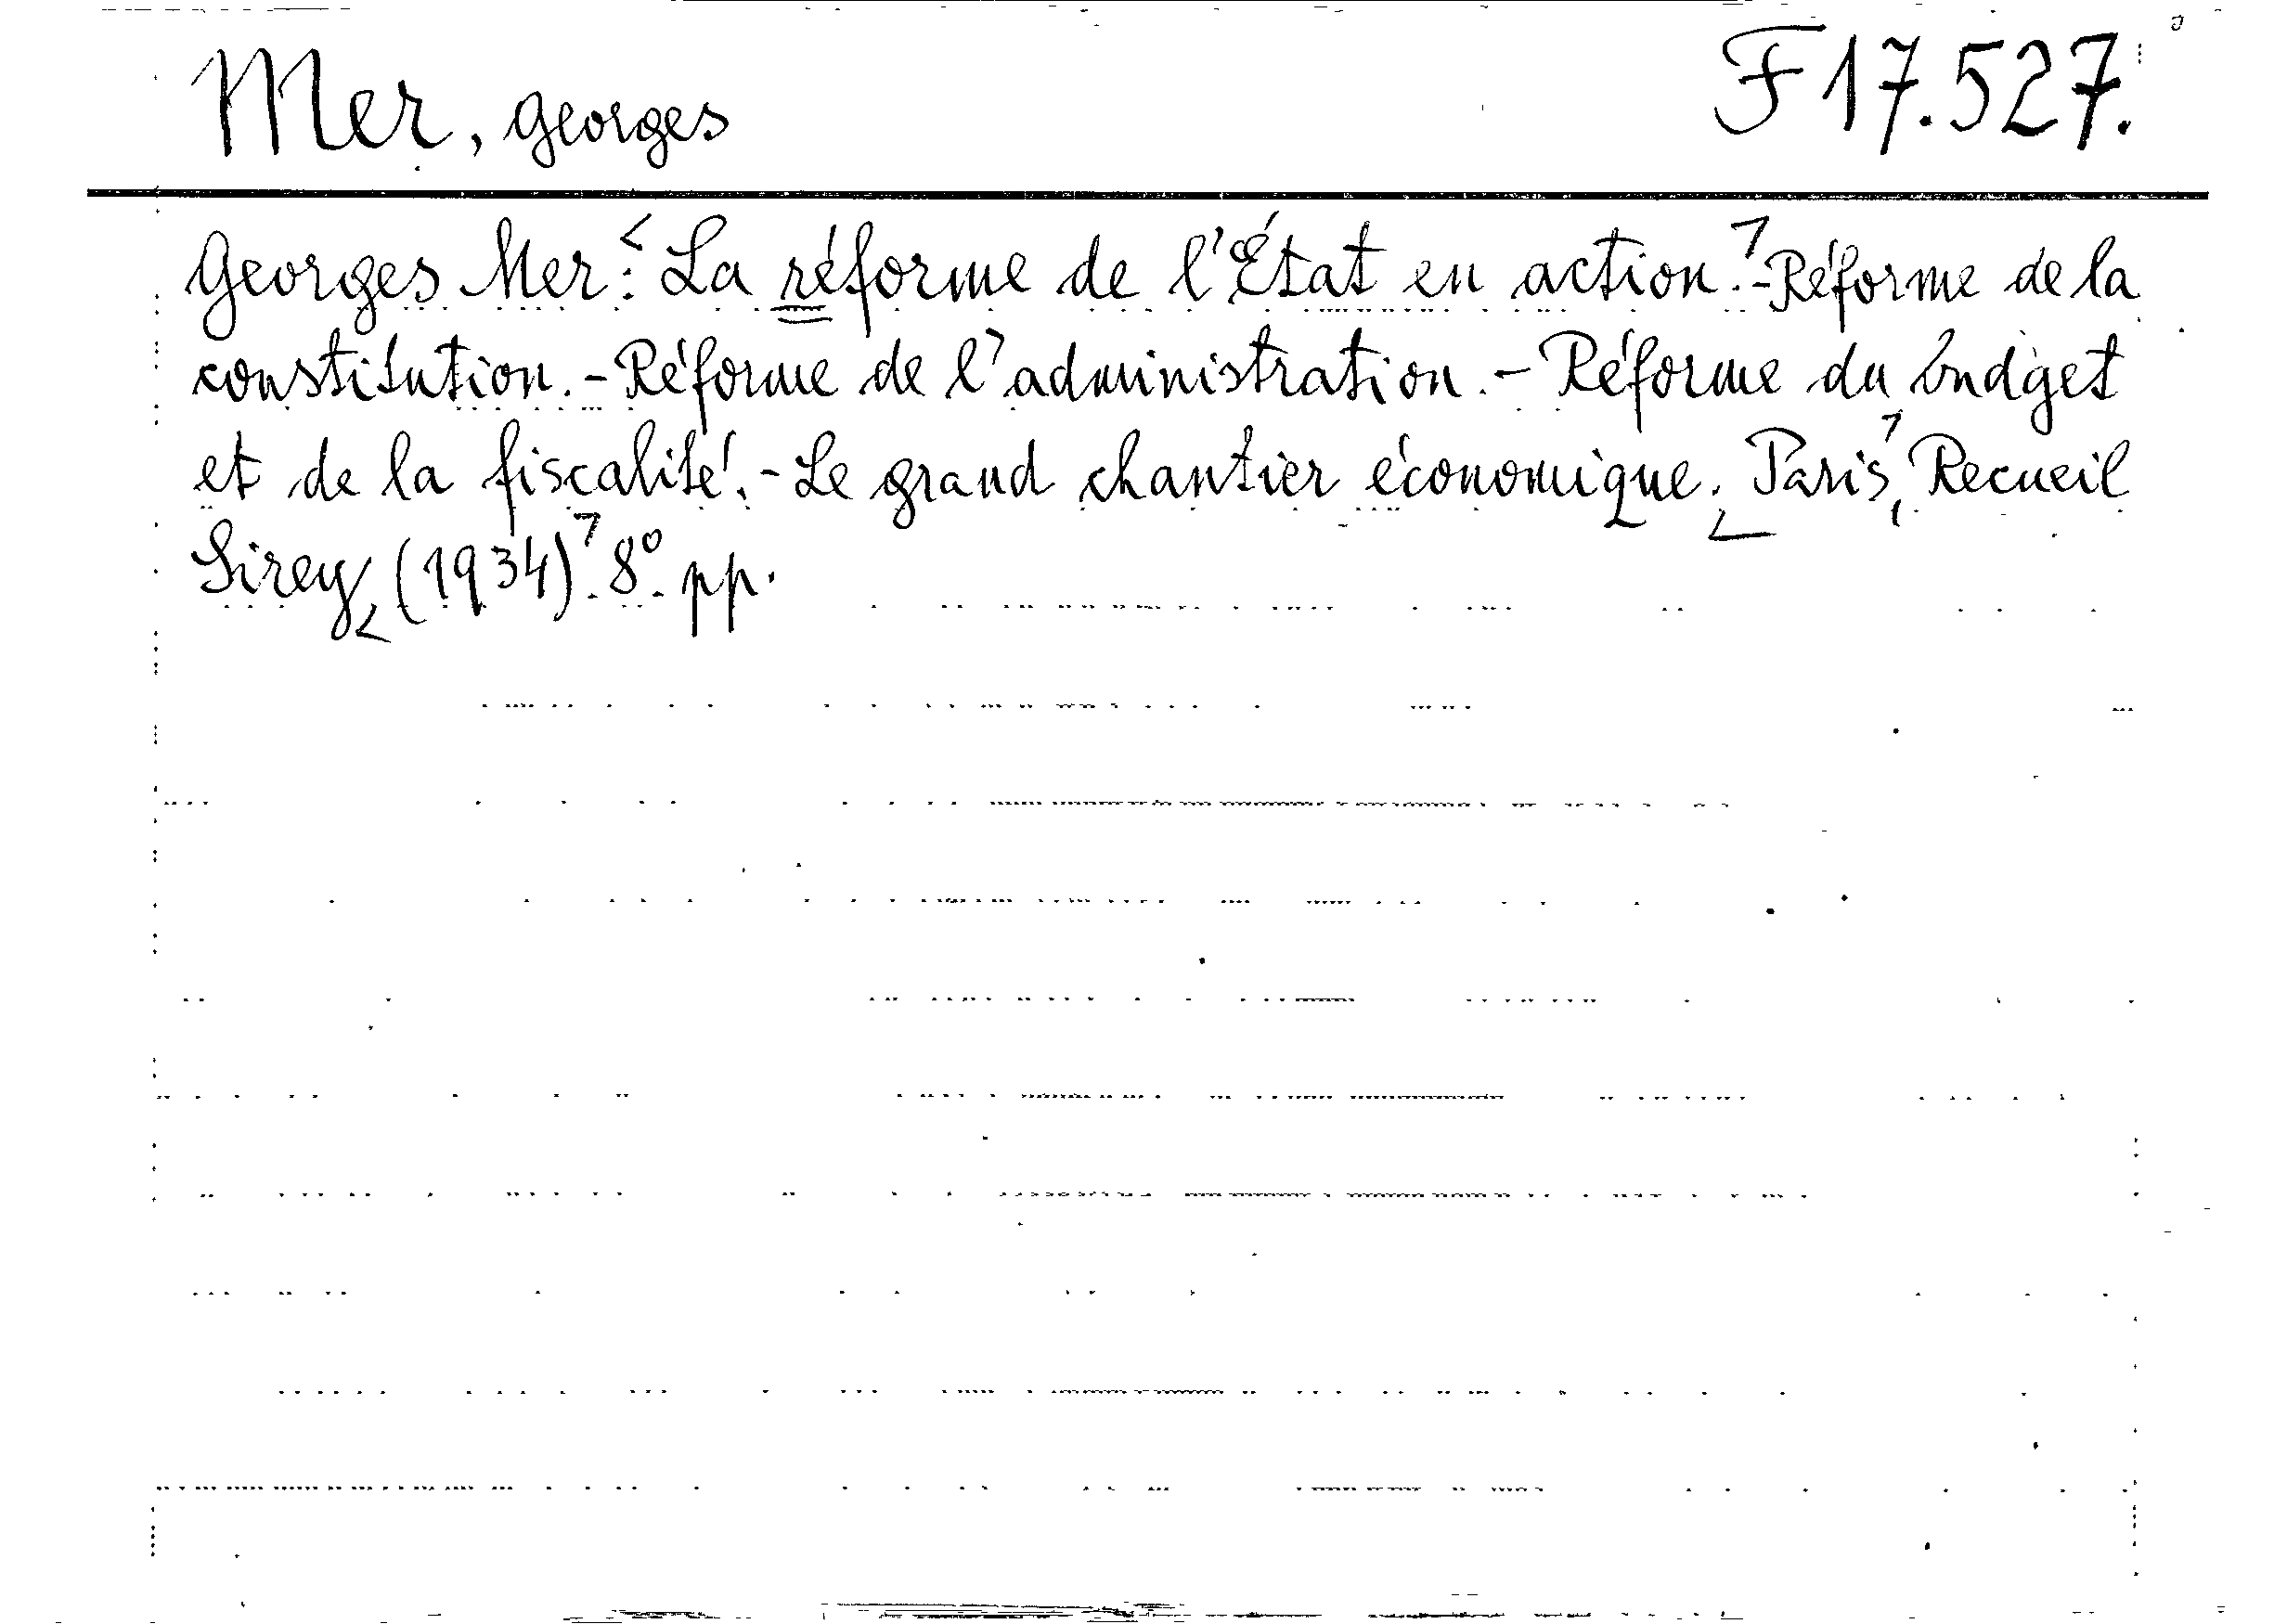 Mer, Georges
F 17.527.
Georges Mer: La réforme de l'État en action.-Réforme de la
constitution.-Réforme de l'administration.-Réforme du budget
et de la fiscalité.-Le grand chantier économique. Paris, Recueil
Sirey, (1934). 8°. pp.